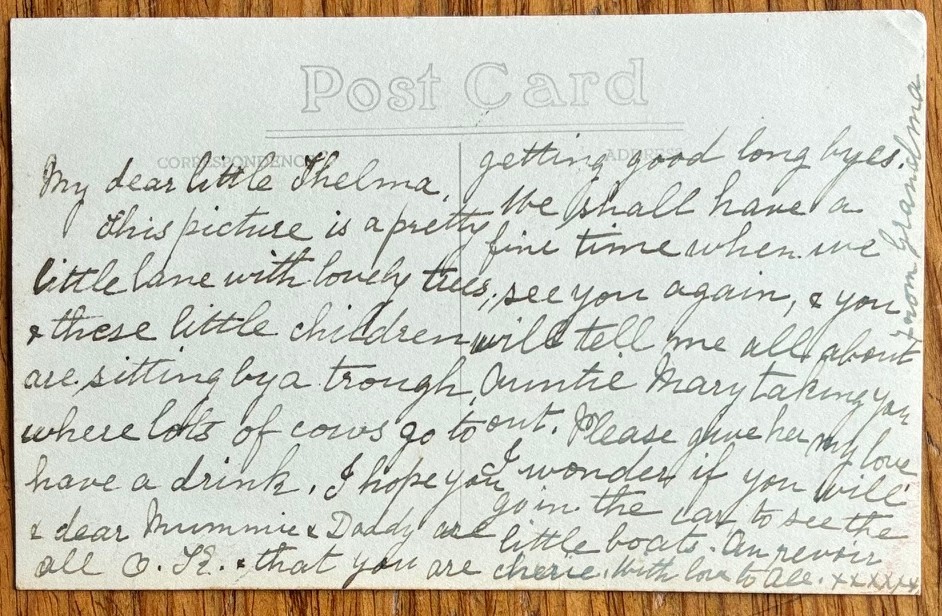 Post Card
CORRESPONDENCE
ADDRESS
My dear little Thelma,
This picture is a pretty
little lane with lovely trees,
& these little children
are sitting by a trough
where lots of cows go to
have a drink. I hope you
& dear Mummie & Daddy are
all O. K. & that you are
getting good long byes.
We shall have a
fine time when we
see you again, & you
will tell me all about
Auntie Mary taking you
out. Please give her my love
I wonder if you will
go in the car to see the
little boats. Au revoir
cherie. With love to all. xxxxx
from Grandma